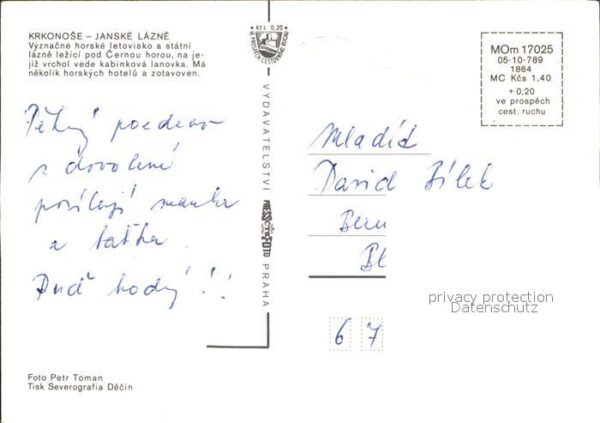 KRKONOŠE – JANSKÉ LÁZNĚ
Význačné horské letovisko a státní
lázně ležící pod Černou horou, na je-
jíž vrchol vede kabinková lanovka. Má
několik horských hotelů a zotavoven.
Pěkný pozdrav
z dovolené
posílají mamka
a taťka.
Buď hodný!!
Foto Petr Toman
Tisk Severografia Děčín
Kčs 0,20
VE PROSPĚCH CESTOVNÍHO RUCHU
VYDAVATELSTVÍ
PRESSFOTO
PRAHA
MOm 17025
05-10-789
1864
MC Kčs 1,40
+0,20
ve prospěch
cest. ruchu
Mladíč
David Bílek
Bl
67
privacy protection
Datenschutz